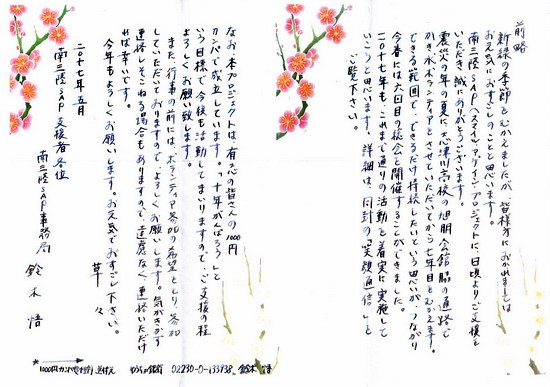 前略
新緑の季節をむかえましたが、皆様方におかれましては
お元気におすごしのことと思います。
南三陸SAP(スマイル・アゲイン・プロジェクト)に、日頃よりご支援を
いただき誠にありがとうございます。
震災の年の夏に、志津川高校の旭朋会館脇の通路で
かき氷ボランティアをさせていただいてから七年目をむかえます。
できる範囲で、できるだけ持続したいという思いが、つながり
今春には六回目の桜会を開催することができました。
二〇十七年も、これまで通りの活動を着実に実施して
いこうと思います。詳細は、同封の「笑顔通信」を
ご覧下さい。
なお、本プロジェクトは、有志の皆さんの1000円
カンパで成立しています。「十年がんばろう」と
いう目標で今後も活動してまいりますので、ご支援の程
よろしくお願い致します。
また、行事の前には、ボランティア参加の希望をとり、参加
していただいておりますので、よろしくお願いします。気がきかず
連絡しそこねる場合もありますので、遠慮なく連絡いただけ
れば幸いです。
今年もよろしくお願いします。お元気でおすごし下さい。
草々
二〇十七年五月
南三陸SAP事務局
鈴木 悟
南三陸SAP支援者各位
1000円カンパ 送付先 ゆうちょ銀行 02230-0-133938 鈴木 悟